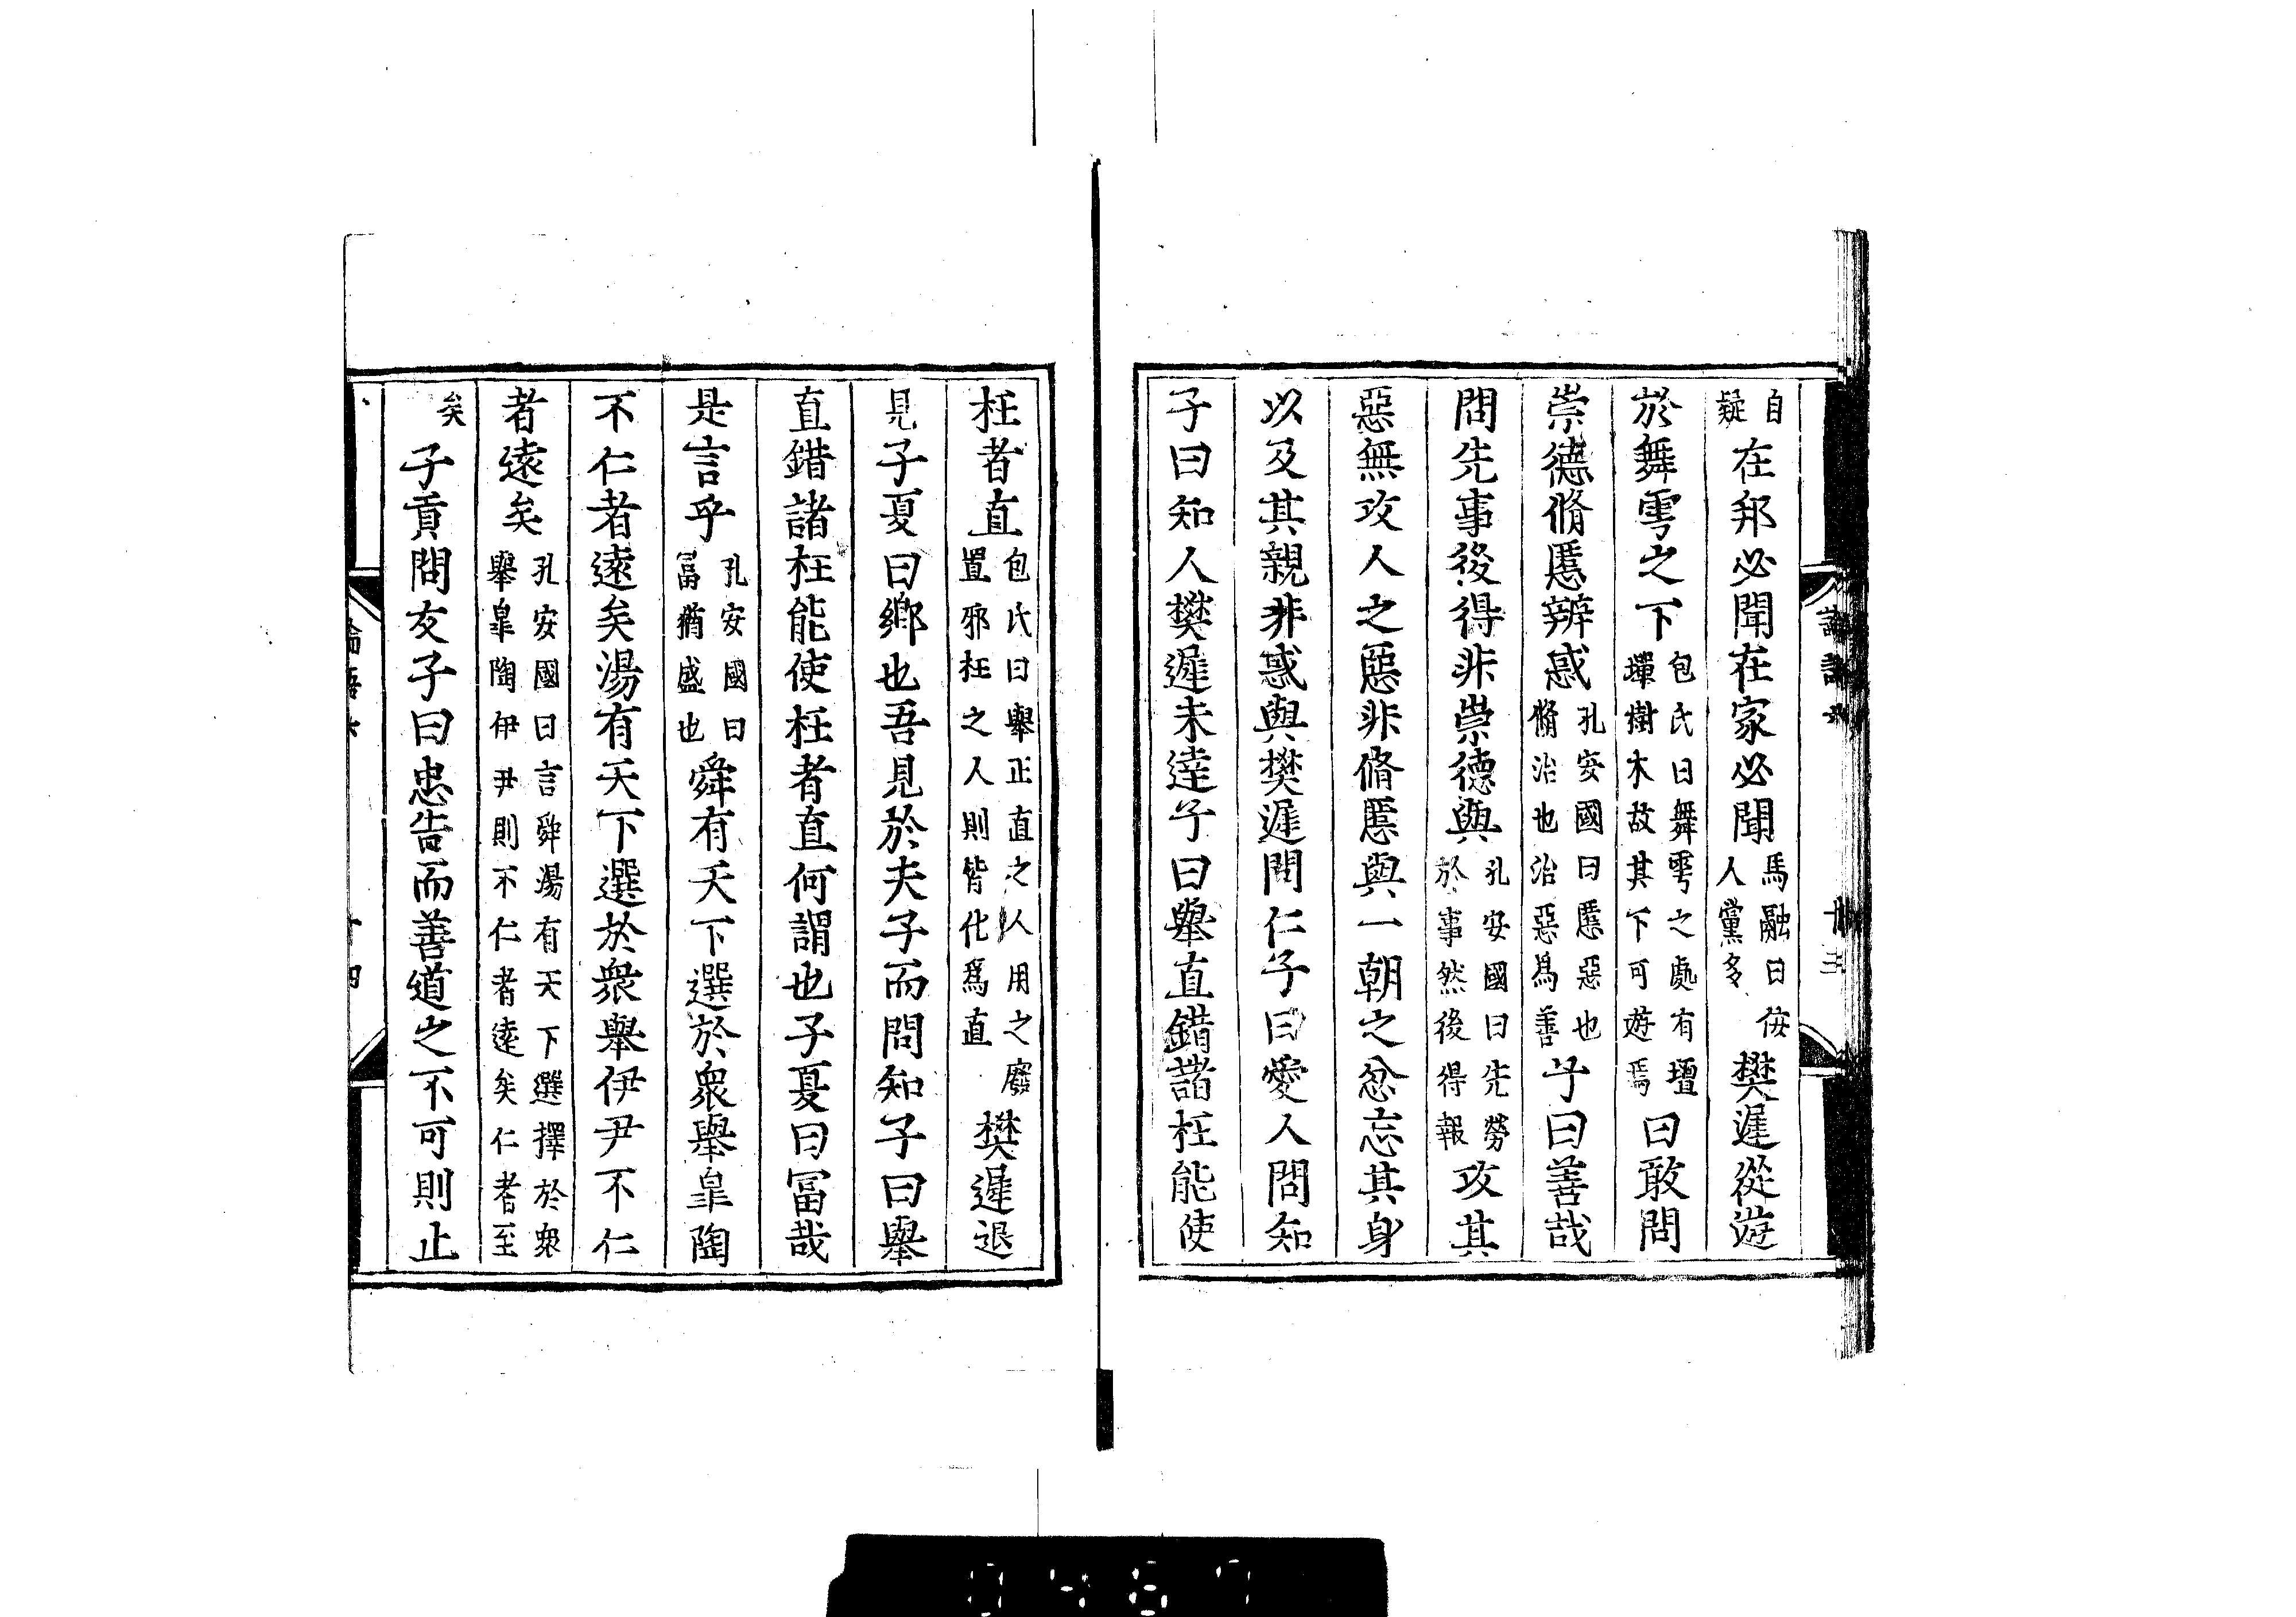 自疑在邦必聞在家必聞馬融曰侫人黨多樊遲從遊
於舞雩之下包氏曰舞雩之處有壇墠樹木故其下可遊焉曰敢問
崇德脩慝辨惑孔安國曰慝惡也脩治也治惡爲善子曰善哉
問先事後得非崇德與孔安國曰先勞於事然後得報攻其
惡無攻人之惡非脩慝與一朝之忿忘其身
以及其親非惑與樊遲問仁子曰愛人問知
子曰知人樊遲未逹子曰舉直錯諸枉能使
枉者直包氏曰舉正直之人用之廢置邪枉之人則皆化爲直樊遲退
見子夏曰鄉也吾見於夫子而問知子曰舉
直錯諸枉能使枉者直何謂也子夏曰冨哉
是言乎孔安國曰冨猶盛也舜有天下選於衆舉皐陶
不仁者遠矣湯有天下選於衆舉伊尹不仁
者遠矣孔安國曰言舜湯有天下選擇於衆舉皐陶伊尹則不仁者遠矣仁者至
矣子貢問友子曰忠告而善道之不可則止